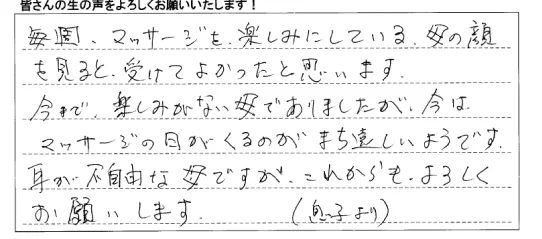 皆さんの生の声をよろしくお願いいたします！
毎週、マッサージを、楽しみにしている、母の顔
を見ると、受けてよかったと思います。
今まで、楽しみがない母でありましたが、今は
マッサージの日がくるのがまち遠しいようです。
耳が不自由な母ですが、これからも、よろしく
お願いします。　（息子より）